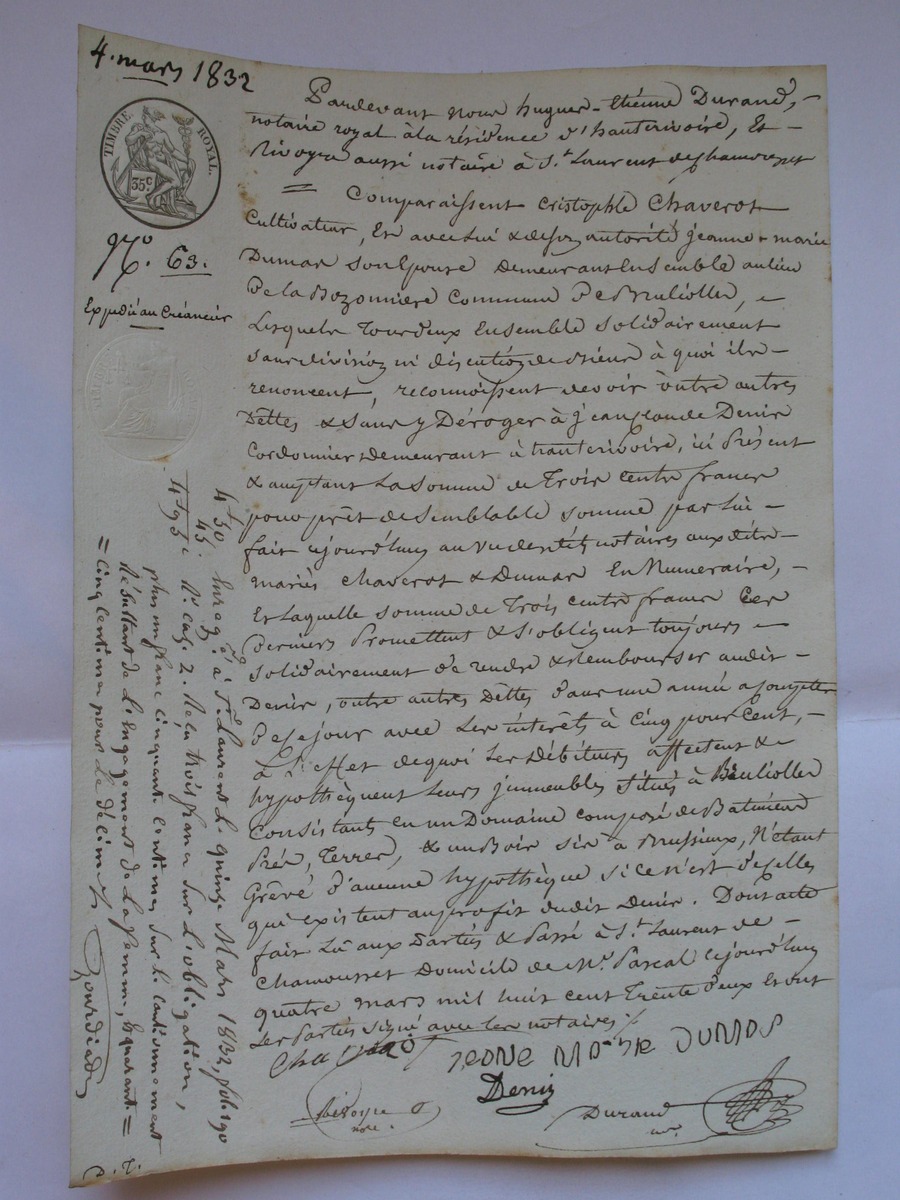 4. mars 1832
TIMBRE ROYAL.
35c
N.o 63.
Expédié au Créancier
Pardevant Nous hugues-étienne Durand,
notaire royal à la résidence d'hauterivoire, Et
aussi notaire à S.t Laurent de Chamousset
Comparaissent Cristophle Chaverot
Cultivateur, Et avec lui & de son autorité jeanne-marie
Dumas son Epouse demeurant Ensemble au lieu
De la Bozonnière Commune De Brulioller,
Lesquels Tous deux Ensemble solidairement
sans division ni discution de à quoi ils
renoncent, reconnoissent devoir outre autres
Dettes & Sans y Déroger à jean claude Denis
Cordonnier demeurant à hauterivoire, ici Présent
& acceptant La Somme de Trois cents francs
pour prêt de Semblable somme par lui
fait cejourd'huy au vu desdits notaires auxdits
mariés Chaverot & Dumas En Numeraire,
Et Laquelle somme de Trois cents francs Ces
Derniers Promettent & s'obligent toujours
solidairement de rendre & rembourser audit
Denis, outre autres Dettes dans une année à compter
De ce jour avec Les intérêts à Cinq pour Cent,
à L'effet de quoi Les Débiteurs affectent &
hypothèquent leurs immeubles Situés à Brulioller
Consistants en un Domaine composé de Batiments
Prés, Terres, & un Bois sis à Brussieux, N'étant
Grêvé d'aucune hypothèque si ce n'est de celles
qui existent au profit dudit Denis. Dont acte
fait Lu aux Parties & Passé à S.t Laurent de
Chamousset Domicile de M.e Pascal cejourd'huy
quatre mars mil huit cent Trente deux Et ont
Les Parties signé avec les notaires
Chaverot JEANE MARIE DUMAS
Denis
nore.
Durand
nre.
4f 50
45
4f 95c
Enregé à St. Laurent le quinze Mars 1832, fol. 190
Ro. case 2. Reçu trois francs sur L'obligation,
plus un franc cinquante centimes sur le cautionnement
Résultant de l'engagement de la femme, Et quarante
cinq centimes pour Le décime